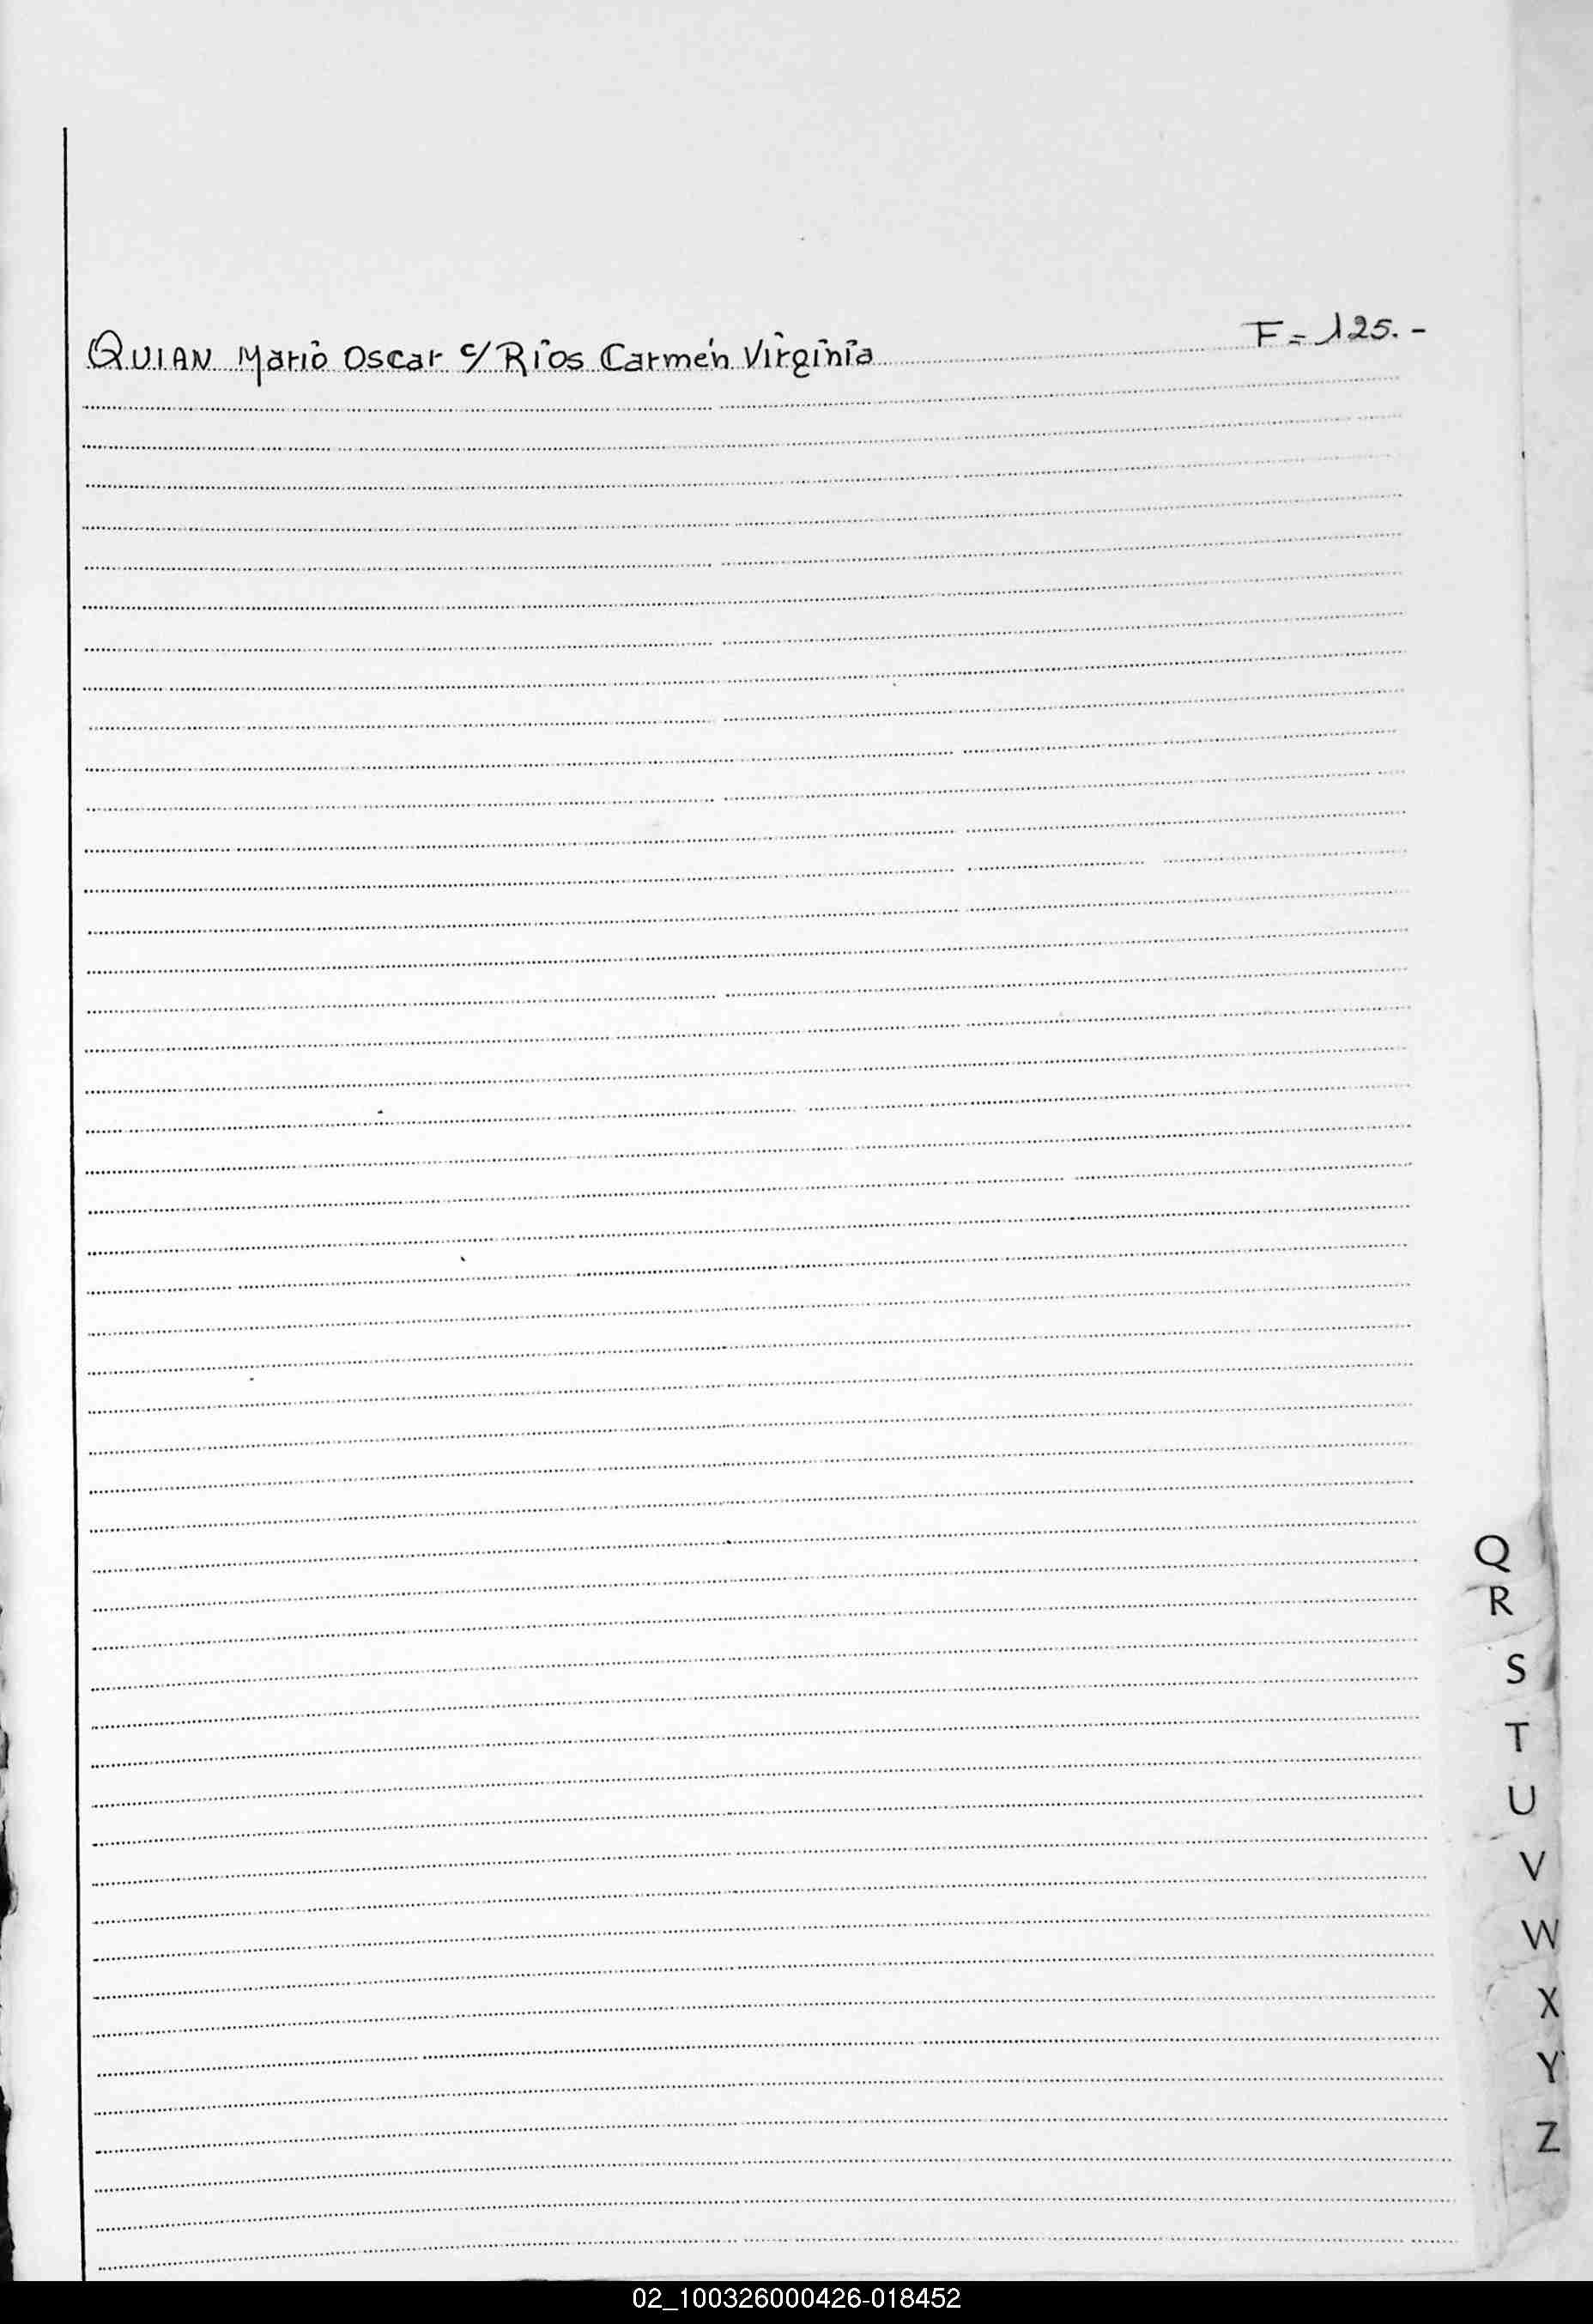 QUIAN Mario Oscar c/ Rios Carmen Virginia F = 125.-
Q
R
S
T
U
V
W
X
Y
Z
02_100326000426-018452